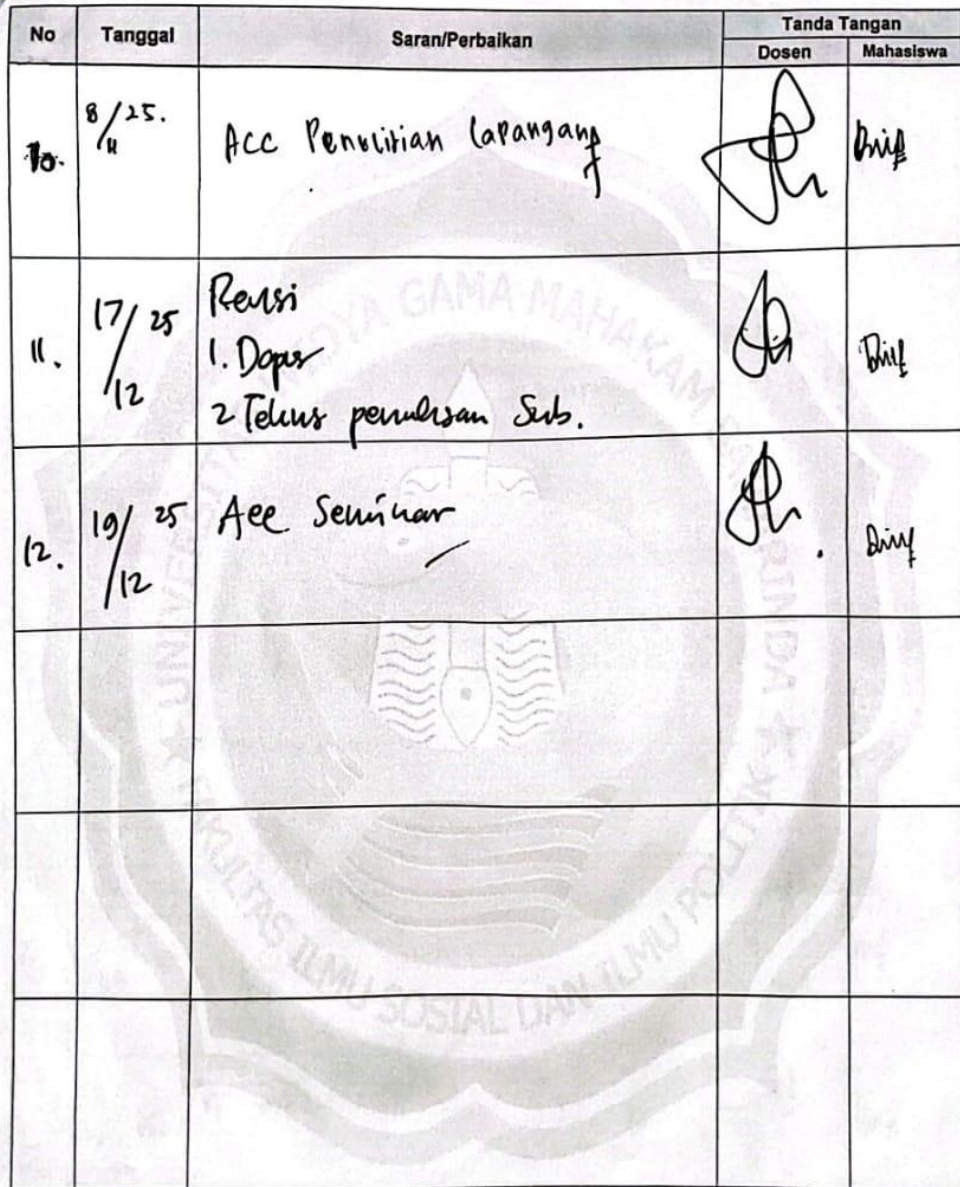 No Tanggal Saran/Perbaikan Tanda Tangan
Dosen Mahasiswa
10. 8/11 25. Acc Penelitian Lapangan
11. 17/12 25 Revisi
1. Dapus
2 Teknis penulisan Sub.
12. 19/12 25 Acc Seminar
UNIVERSITAS WIDYA GAMA MAHAKAM SAMARINDA
FAKULTAS ILMU SOSIAL DAN ILMU POLITIK